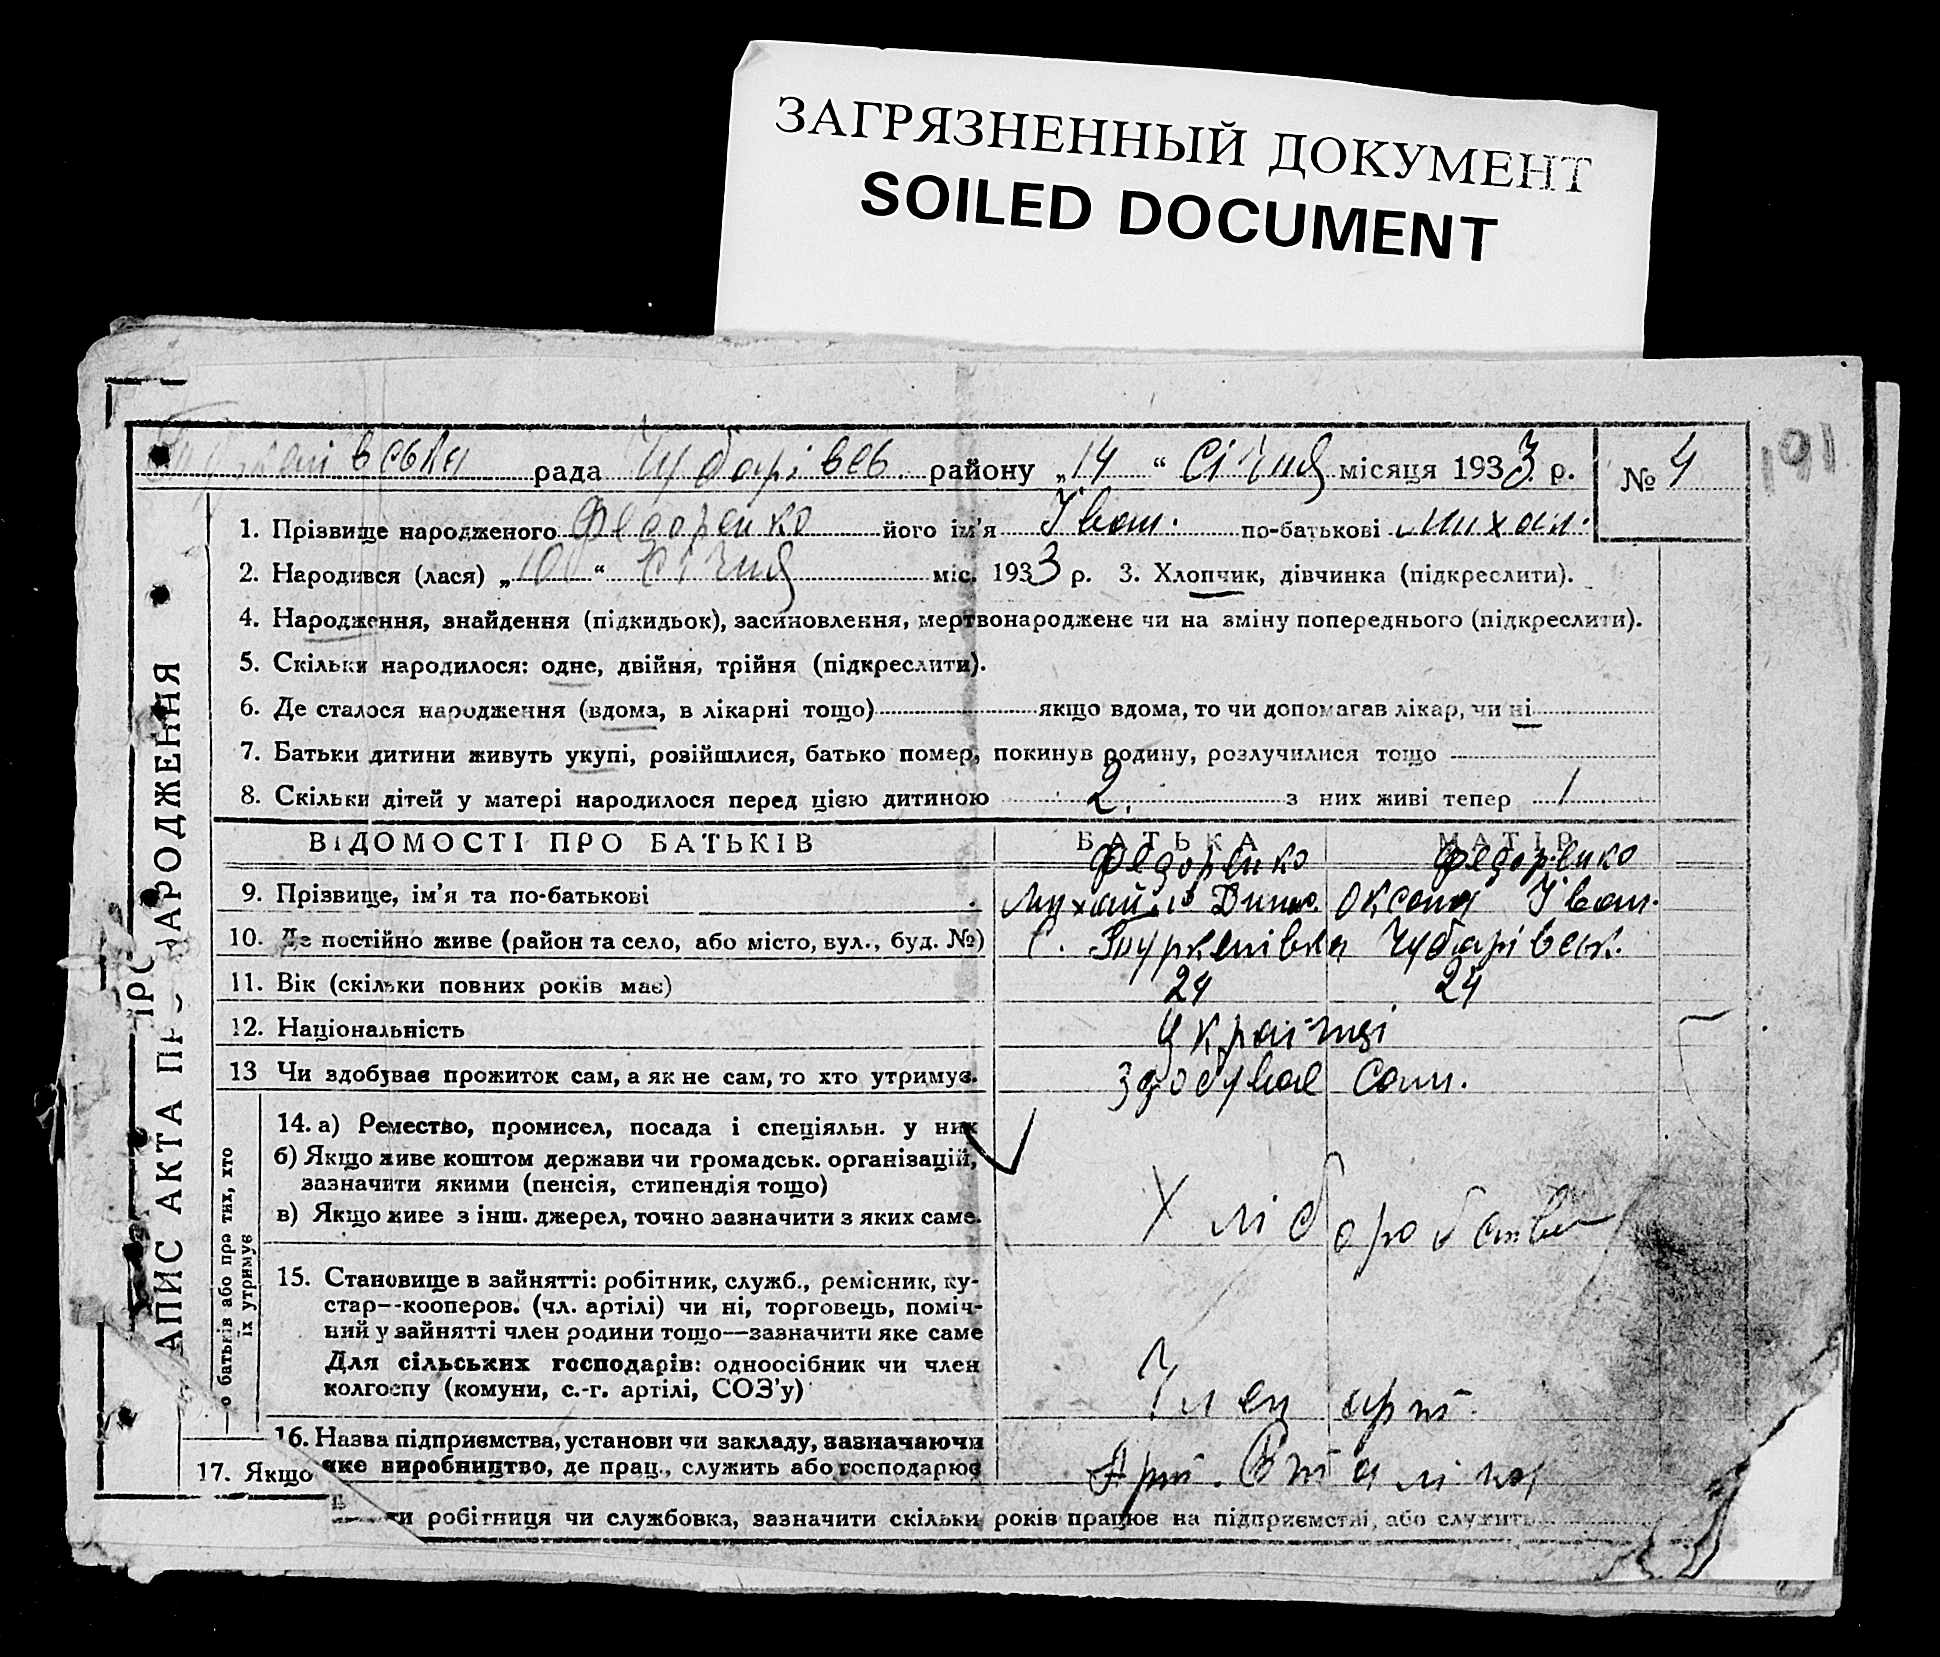 ЗАГРЯЗНЕННЫЙ ДОКУМЕНТ
SOILED DOCUMENT
191
рада Чубарівсь району „14“ Січня місяця 1933 р. № 4
1. Прізвище народженого Федоренко його ім'я Іван. по-батькові Михай.
2. Народився (лася) „10“ Січня міс. 1933 р. 3. Хлопчик, дівчинка (підкреслити).
4. Народження, знайдення (підкидьок), засиновлення, мертвонароджене чи на зміну попереднього (підкреслити).
5. Скільки народилося: одне, двійня, трійня (підкреслити).
6. Де сталося народження (вдома, в лікарні тощо) якщо вдома, то чи допомагав лікар, чи ні
7. Батьки дитини живуть укупі, розійшлися, батько помер, покинув родину, розлучилися тощо
8. Скільки дітей у матері народилося перед цією дитиною 2. з них живі тепер 1
ВІДОМОСТІ ПРО БАТЬКІВ БАТЬКА МАТІР
Федоренко Федоренко
9. Прізвище, ім'я та по-батькові Оксана Іван.
10. Де постійно живе (район та село, або місто, вул., буд. №) с. Чубарівськ.
11. Вік (скільки повних років має) 24 24
12. Національність Українці
13 Чи здобував прожиток сам, а як не сам, то хто утримує. здобував сам.
14. а) Ремество, промисел, посада і спеціяльн. у них
б) Якщо живе коштом держави чи громадськ. організацій,
зазначити якими (пенсія, стипендія тощо)
в) Якщо живе з інш. джерел, точно зазначити з яких саме.
Хліборобство
15. Становище в зайнятті: робітник, служб., ремісник, ку-
стар--кооперов. (чл. артілі) чи ні, торговець, поміч-
ний у зайнятті член родини тощо—зазначити яке саме
Для сільських господарів: одноосібник чи член
колгоспу (комуни, с.-г. артілі, СОЗ'у)
Член арт.
16. Назва підприємства, установи чи закладу, зазначаючи
яке виробництво, де прац., служить або господарює
Арт. Сталіна
17. Якщо
ти робітниця чи службовка, зазначити скільки років працює на підприємстві, або служить
АПИС АКТА ПРО НАРОДЖЕННЯ
о батьків або про тих, хто
їх утримує